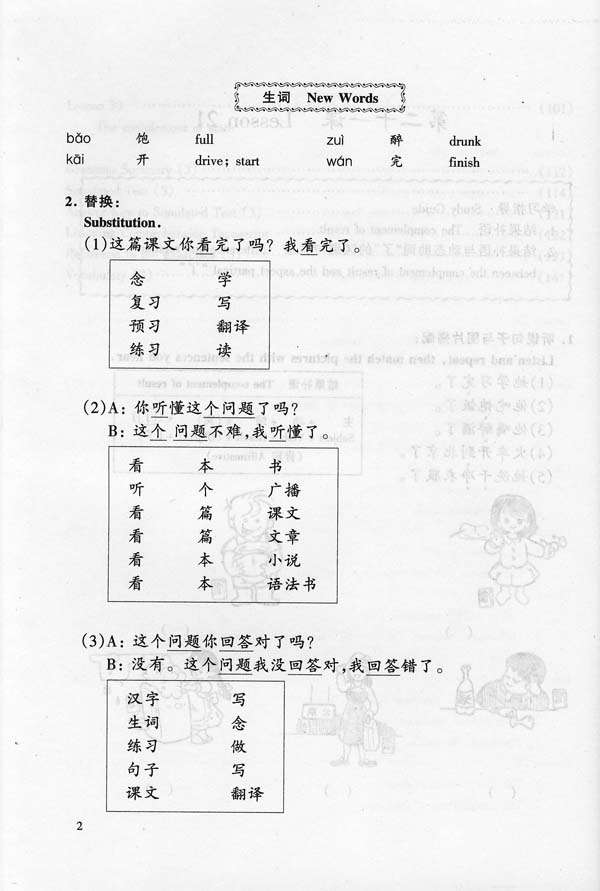 生词 New Words
bǎo 饱 full zuì 醉 drunk
kāi 开 drive; start wán 完 finish
2. 替换:
Substitution.
(1)这篇课文你看完了吗？我看完了。
念 学
复习 写
预习 翻译
练习 读
(2)A: 你听懂这个问题了吗？
B: 这个 问题不难,我听懂了。
看 本 书
听 个 广播
看 篇 课文
看 篇 文章
看 本 小说
看 本 语法书
(3)A: 这个问题你回答对了吗？
B: 没有。这个问题我没回答对,我回答错了。
汉字 写
生词 念
练习 做
句子 写
课文 翻译
2